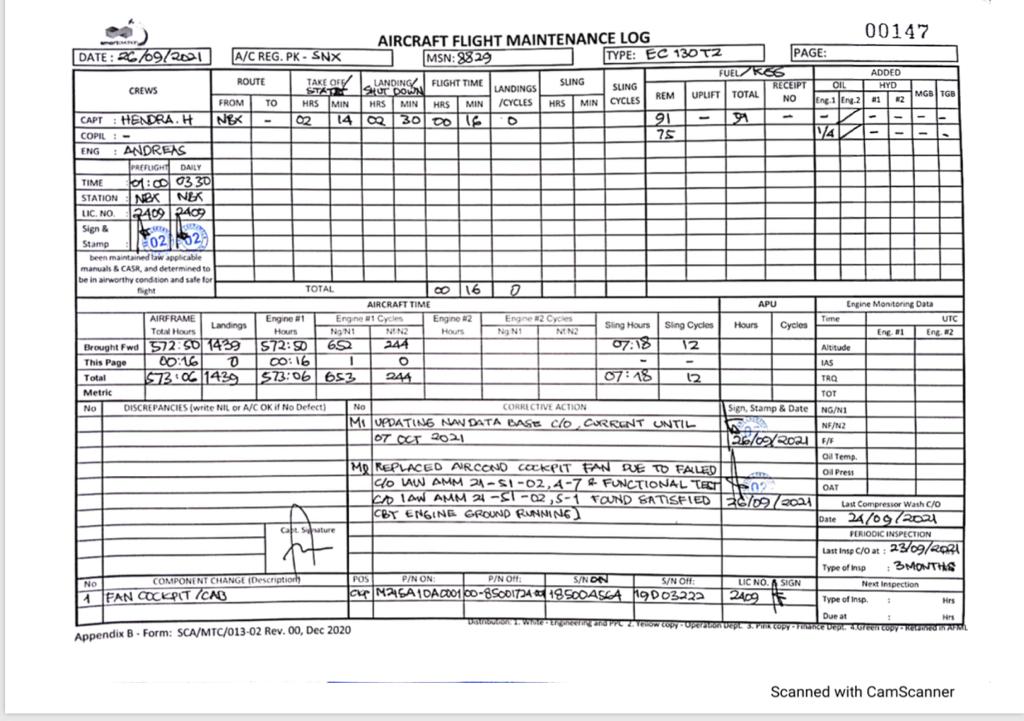 00147
AIRCRAFT FLIGHT MAINTENANCE LOG
DATE : 26/09/2021 A/C REG. PK - SNX MSN: 8829 TYPE: EC 130T2 PAGE:
CREWS ROUTE TAKE OFF/ START LANDING/ SHUT DOWN FLIGHT TIME LANDINGS /CYCLES SLING SLING CYCLES FUEL/KGS ADDED
FROM TO HRS MIN HRS MIN HRS MIN HRS MIN REM UPLIFT TOTAL RECEIPT NO OIL HYD MGB TGB
Eng.1 Eng.2 #1 #2
CAPT : HENDRA.H NBX - 02 14 02 30 00 16 0 91 - 91 - - - - -
COPIL : - 75 1/4 - - - -
ENG : ANDREAS
PREFLIGHT DAILY
TIME : 01:00 03 30
STATION : NBX NBX
LIC. NO. : 2409 2409
Sign & Stamp : 02 02
been maintained law applicable
manuals & CASR, and determined to
be in airworthy condition and safe for
flight
TOTAL 00 16 0
AIRCRAFT TIME APU Engine Monitoring Data
AIRFRAME Total Hours Landings Engine #1 Hours Engine #1 Cycles Ng/N1 Nf/N2 Engine #2 Hours Engine #2 Cycles Ng/N1 Nf/N2 Sling Hours Sling Cycles Hours Cycles Time : UTC
Eng. #1 Eng. #2
Brought Fwd 572:50 1439 572:50 652 244 07:18 12 Altitude
This Page 00:16 0 00:16 1 0 - - IAS
Total 573:06 1439 573:06 653 244 07:18 12 TRQ
Metric TOT
No DISCREPANCIES (write NIL or A/C OK if No Defect) No CORRECTIVE ACTION Sign, Stamp & Date NG/N1
M1 UPDATING NAV DATA BASE C/O, CURRENT UNTIL NF/N2
07 OCT 2021 26/09/2021 F/F
Oil Temp.
M2 REPLACED AIRCOND COCKPIT FAN DUE TO FAILED Oil Press
C/O IAW AMM 21-51-02,4-7 & FUNCTIONAL TEST 02 OAT
C/O IAW AMM 21-51-02,5-1 FOUND SATISFIED 26/09/2021 Last Compressor Wash C/O
(BY ENGINE GROUND RUNNING) Date 24/09/2021
Capt. Signature PERIODIC INSPECTION
Last Insp C/O at : 23/09/2021
Type of Insp : 3 MONTHS
No COMPONENT CHANGE (Description) POS P/N ON: P/N Off: S/N ON S/N Off: LIC NO. SIGN Next Inspection
1 FAN COCKPIT/CAB CKP 185004564 19D03222 2409 Type of Insp. : Hrs
Due at : Hrs
Distribution: 1. White - Engineering and PPC 2. Yellow copy - Operation Dept. 3. Pink copy - Finance Dept. 4.Green copy - Retained in AFML
Appendix B - Form: SCA/MTC/013-02 Rev. 00, Dec 2020
Scanned with CamScanner